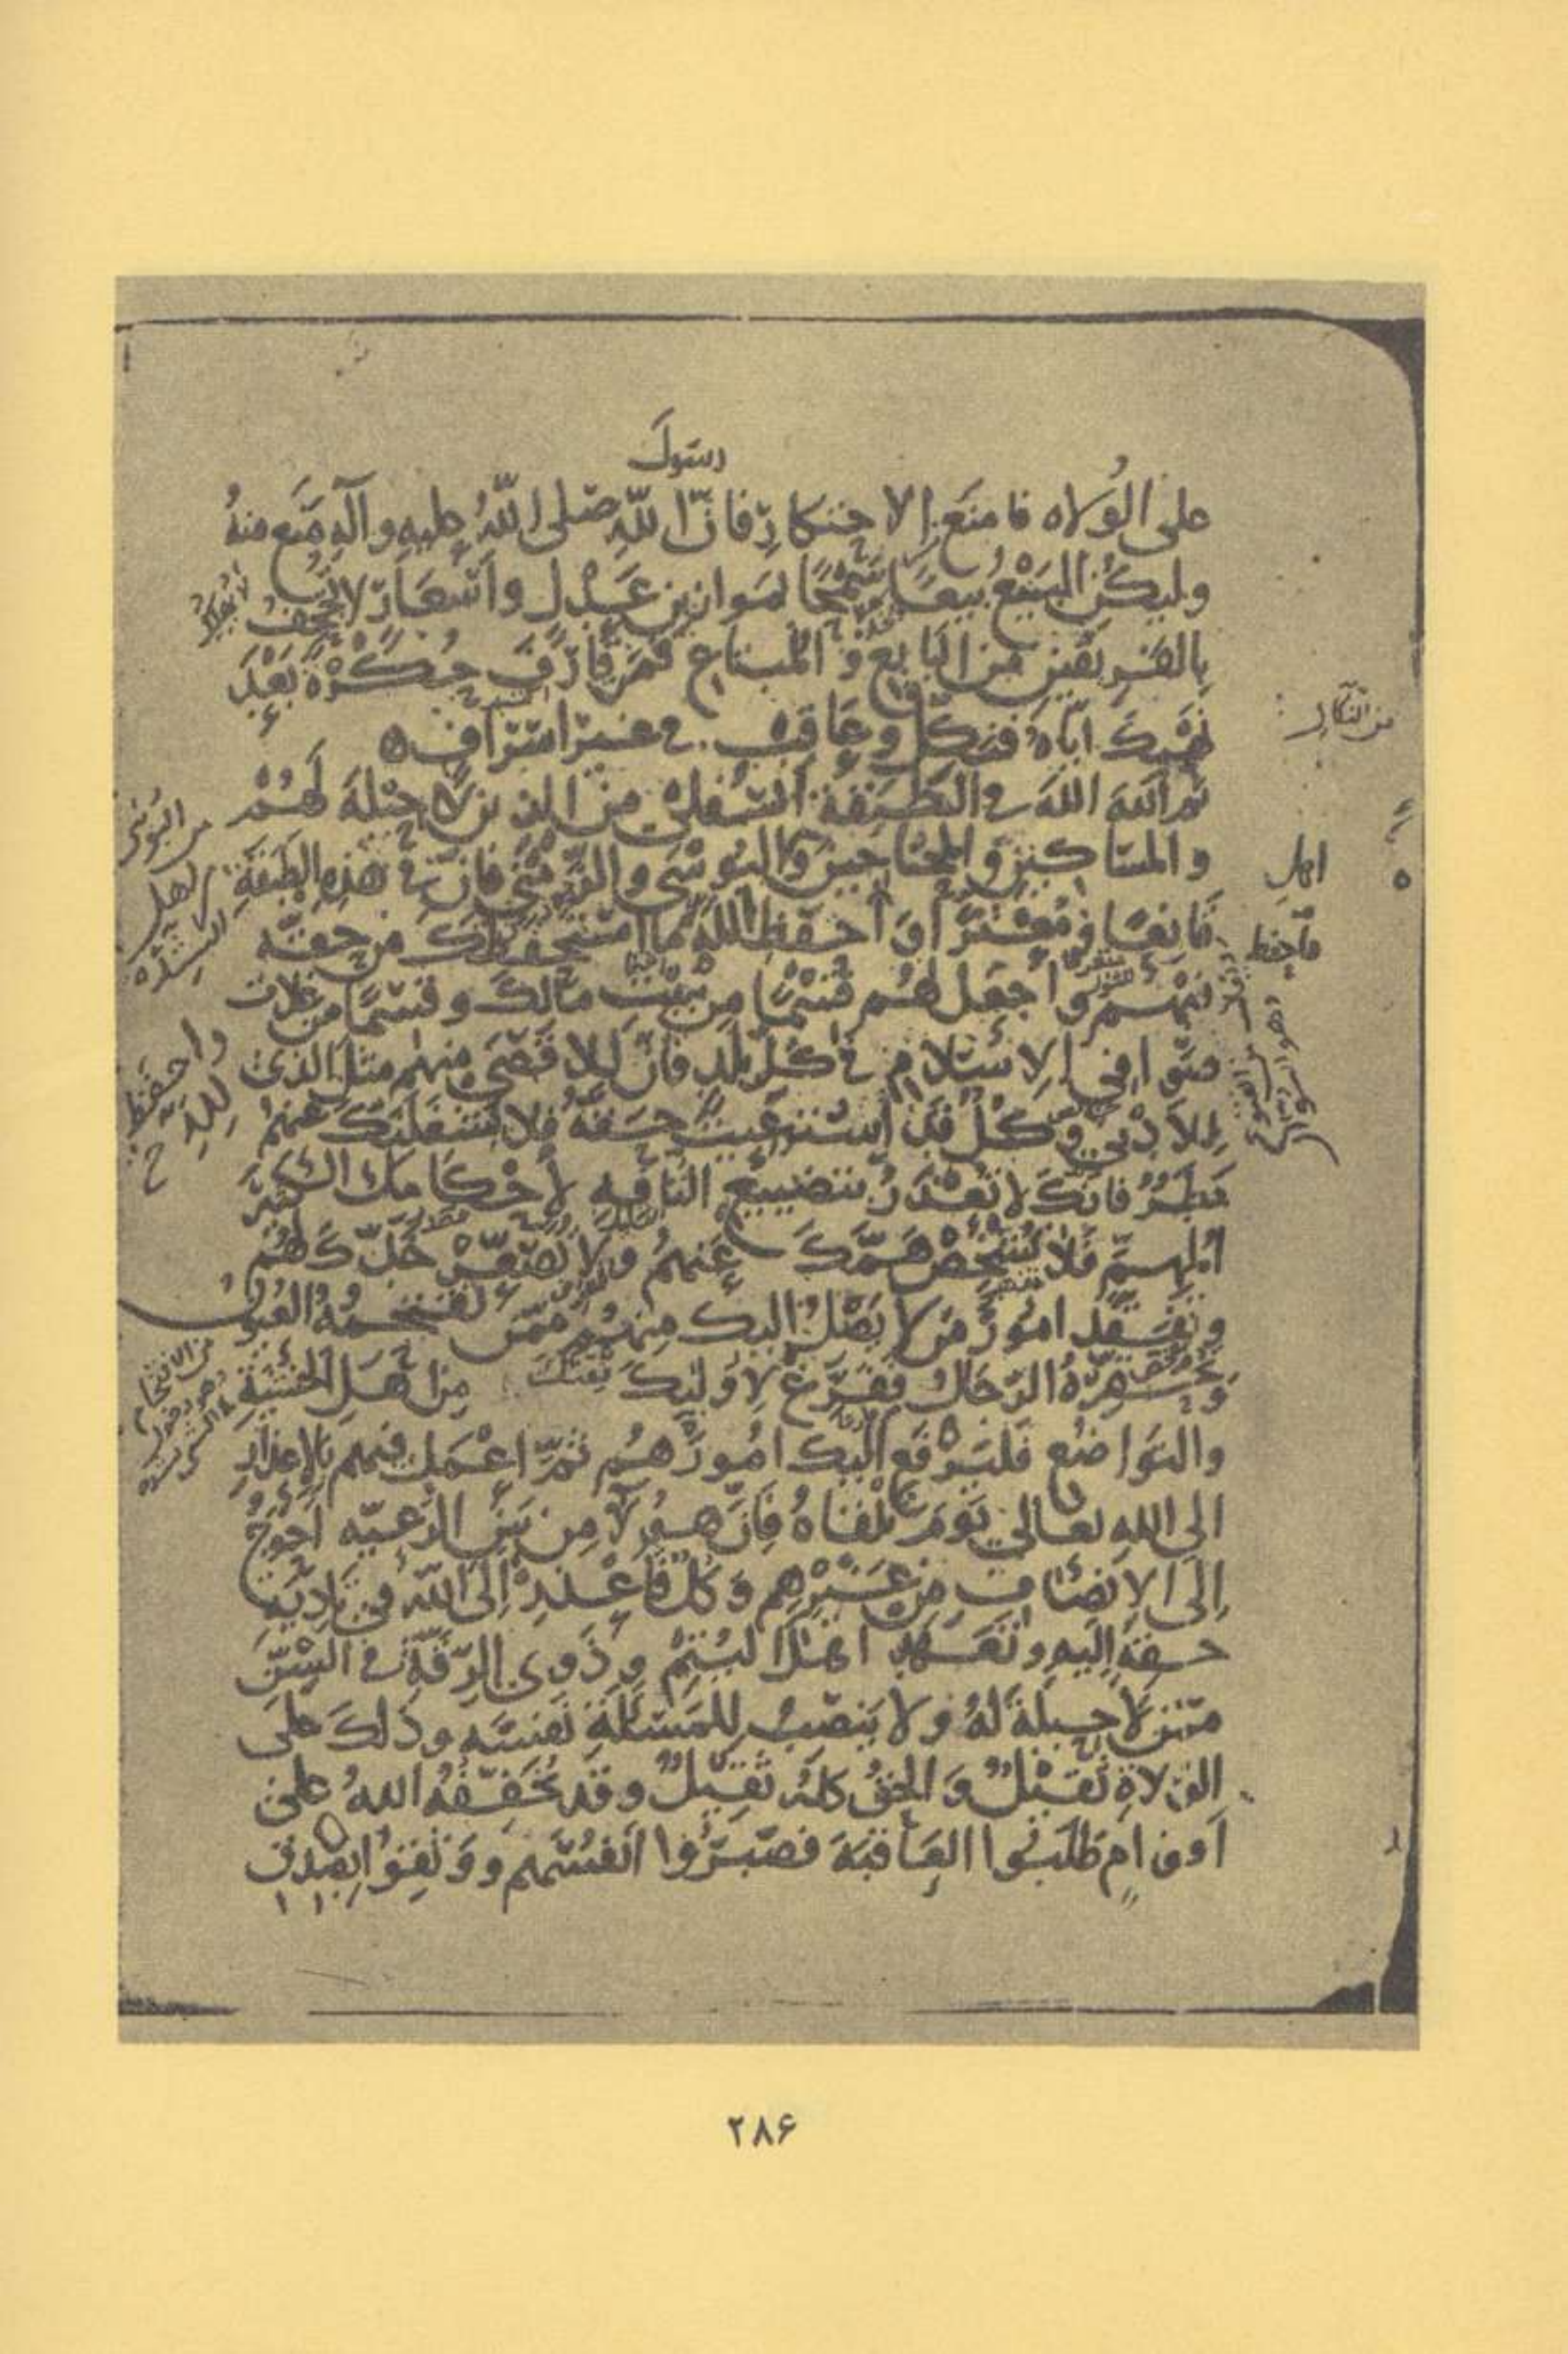 رسول
على الولاه فامنع الاحتكار فان الله صلى الله عليه وآله منع منه
وليكن البيع بيعا سمحا لموازين عدل واسعار لا تجحف
بالفريقين من البايع و المبتاع فمن قارف حكرة بعد
نهيك اياه فنكل وعاقب في غير اسراف
ثم الله الله في الطبقة السفلى من الذين لا حيلة لهم
والمساكين و المحتاجين والبوسى والزمنى فان في هذه الطبقة
قانعا و معترا واحفظ الله ما استحفظك من حقه
فيهم واجعل لهم قسما من بيت مالك وقسما من غلات
صوافي الاسلام في كل بلد فان للاقصى منهم مثل الذي
للادنى وكل قد استرعيت حقه فلا يشغلنك عنهم
بطر فانك لا تعذر بتضييع التافه لاحكامك الكثير
المهم فلا تشخص همك عنهم ولا تصعر خدك لهم
وتفقد امور من لا يصل اليك منهم ممن تقتحمه العيون
وتحقره الرجال ففرغ لاوليك ثقتك من اهل الخشية
والتواضع فليرفع اليك امورهم ثم اعمل فيهم بالاعذار
الى الله تعالى يوم تلقاه فان هولا من بين الرعيه احوج
الى الانصاف من غيرهم وكل فاعذر الى الله في تادية
حقه اليه وتعهد اهل اليتم وذوى الرقة في السن
ممن لا حيلة له ولا ينصب للمسئلة نفسه وذلك على
الولاة ثقيل والحق كله ثقيل وقد يخففه الله على
اقوام طلبوا العاقبة فصبروا انفسهم ووثقوا بصدق
من البوسى
اهل
الشده
واحفظ
لله
اهل
من الاقتحام
۲۸۶